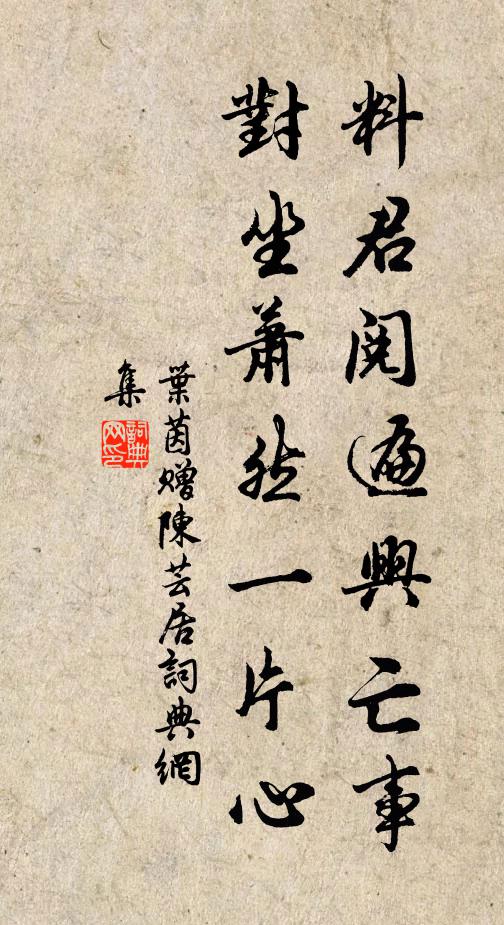 料君閱遍興亡事
對坐蕭然一片心
葉茵贈陳芸居詞典網
集
詞典網印